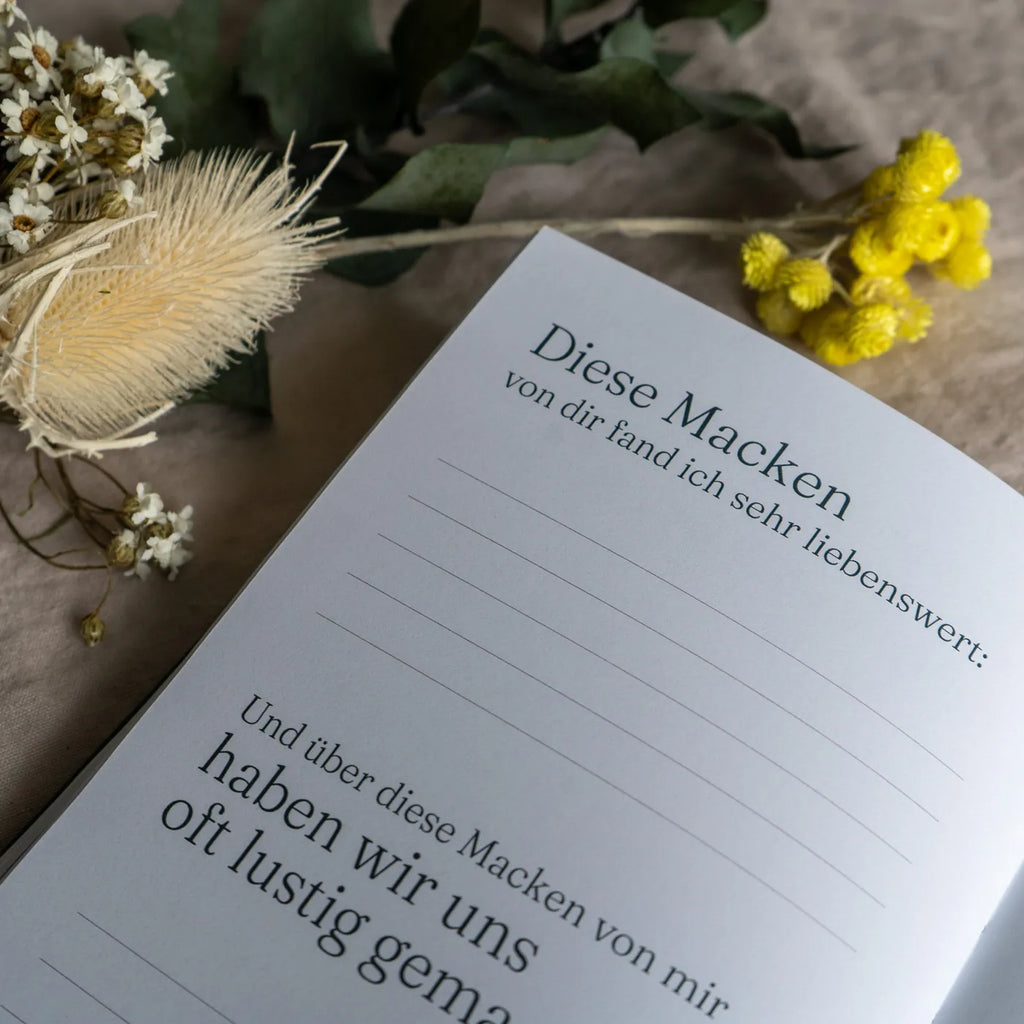 Diese Macken
von dir fand ich sehr liebenswert:
Und über diese Macken von mir
haben wir uns
oft lustig